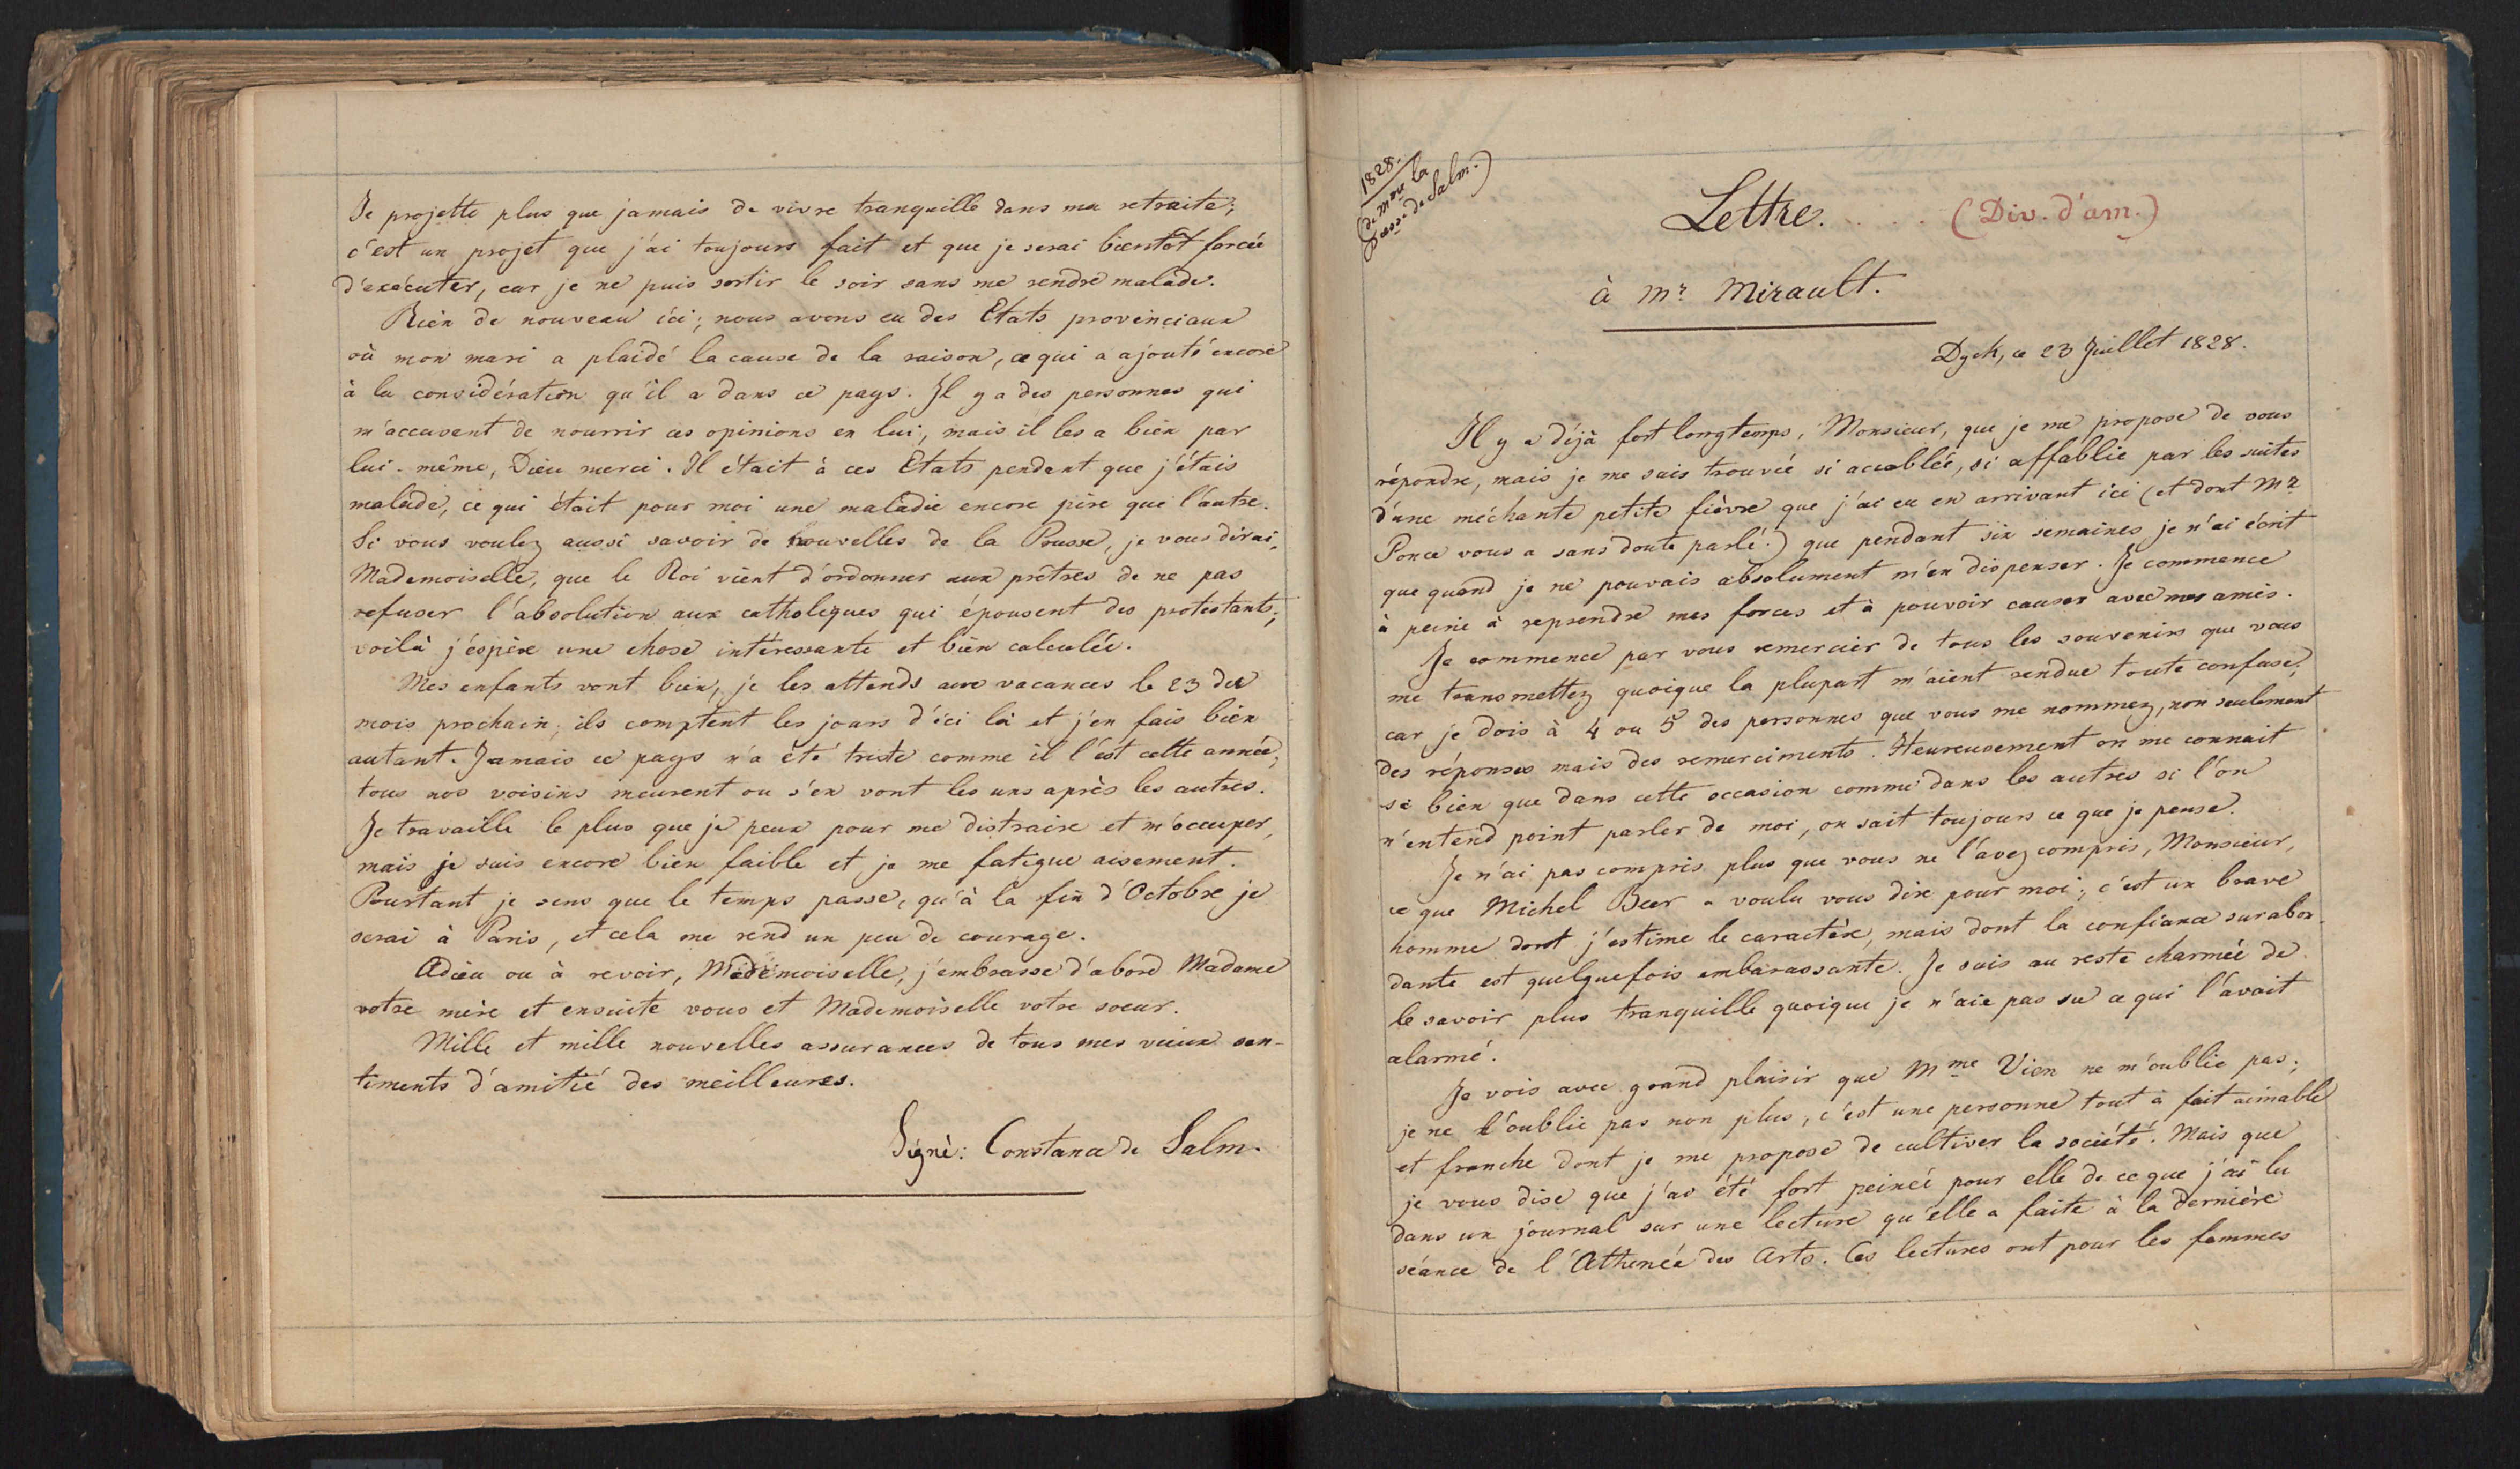 Je projette plus que jamais de vivre tranquille dans ma retraite;
c'est un projet que j'ai toujours fait et que je serai bientôt forcée
d'exécuter, car je ne puis sortir le soir sans me rendre malade.
Rien de nouveau ici; nous avons eu des Etats provinciaux
où mon mari a plaidé la cause de la raison, ce qui a ajouté encore
à la considération qu'il a dans ce pays. Il y a des personnes qui
m'accusent de nourrir ces opinions en lui, mais il les a bien par
lui-même, Dieu merci. Il était à ces Etats pendant que j'étais
malade, ce qui était pour moi une maladie encore pire que l'autre.
Si vous voulez aussi savoir de nouvelles de la Prusse, je vous dirai,
Mademoiselle, que le Roi vient d'ordonner aux prêtres de ne pas
refuser l'absolution aux catholiques qui épousent des protestants;
voilà j'éspère une chose intéressante et bien calculée.
Mes enfants vont bien, je les attends aux vacances le 23 du
mois prochain; ils comptent les jours d'ici là et j'en fais bien
autant. Jamais ce pays n'a été triste comme il l'est cette année,
tous nos voisins meurent ou s'en vont les uns après les autres.
Je travaille le plus que je peux pour me distraire et m'occuper,
mais je suis encore bien faible et je me fatigue aisement.
Pourtant je sens que le temps passe, qu'à la fin d'Octobre je
serai à Paris, et cela me rend un peu de courage.
Adieu ou à revoir, Mademoiselle, j'embrasse d'abord Madame
votre mère et ensuite vous et Mademoiselle votre soeur.
Mille et mille nouvelles assurances de tous mes vieux sen-
timents d'amitié des meilleures.
Signé: Constance de Salm.
1828.
(de Mme la
Pcesse de Salm.)
Lettre. . . . . (Div. d'am.)
à Mr. Mirault.
Dyck, ce 23 Juillet 1828.
Il y a déjà fort longtemps, Monsieur, que je me propose de vous
répondre, mais je me suis trouvée si accablée, si affablie par les suites
d'une méchante petite fièvre que j'ai eu en arrivant ici (et dont Mr
Ponce vous a sans doute parlé.) que pendant six semaines je n'ai écrit
que quand je ne pouvais absolument m'en dispenser. Je commence
à peine à reprendre mes forces et à pouvoir causer avec mes amis.
Je commence par vous remercier de tous les souvenirs que vous
me transmettez quoique la plupart m'aient rendue toute confuse,
car je dois à 4 ou 5 des personnes que vous me nommez, non seulement
des réponses mais des remerciments. Heureusement on me connait
si bien que dans cette occasion comme dans les autres si l'on
n'entend point parler de moi, on sait toujours ce que je pense.
Je n'ai pas compris plus que vous ne l'avez compris, Monsieur,
ce que Michel Beer a voulu vous dire pour moi; c'est un brave
homme dont j'estime le caractère, mais dont la confiance surabon-
dante est quelquefois embarassante. Je suis au reste charmée de
le savoir plus tranquille quoique je n'aie pas su ce qui l'avait
alarmé.
Je vois avec grand plaisir que Mme Vien ne m'oublie pas;
je ne l'oublie pas non plus, c'est une personne tout à fait aimable
et franche dont je me propose de cultiver la société. Mais que
je vous dise que j'ai été fort peinée pour elle de ce que j'ai lu
dans un journal sur une lecture qu'elle a faite à la dernière
séance de l'Athenée des Arts. Ces lectures ont pour les femmes